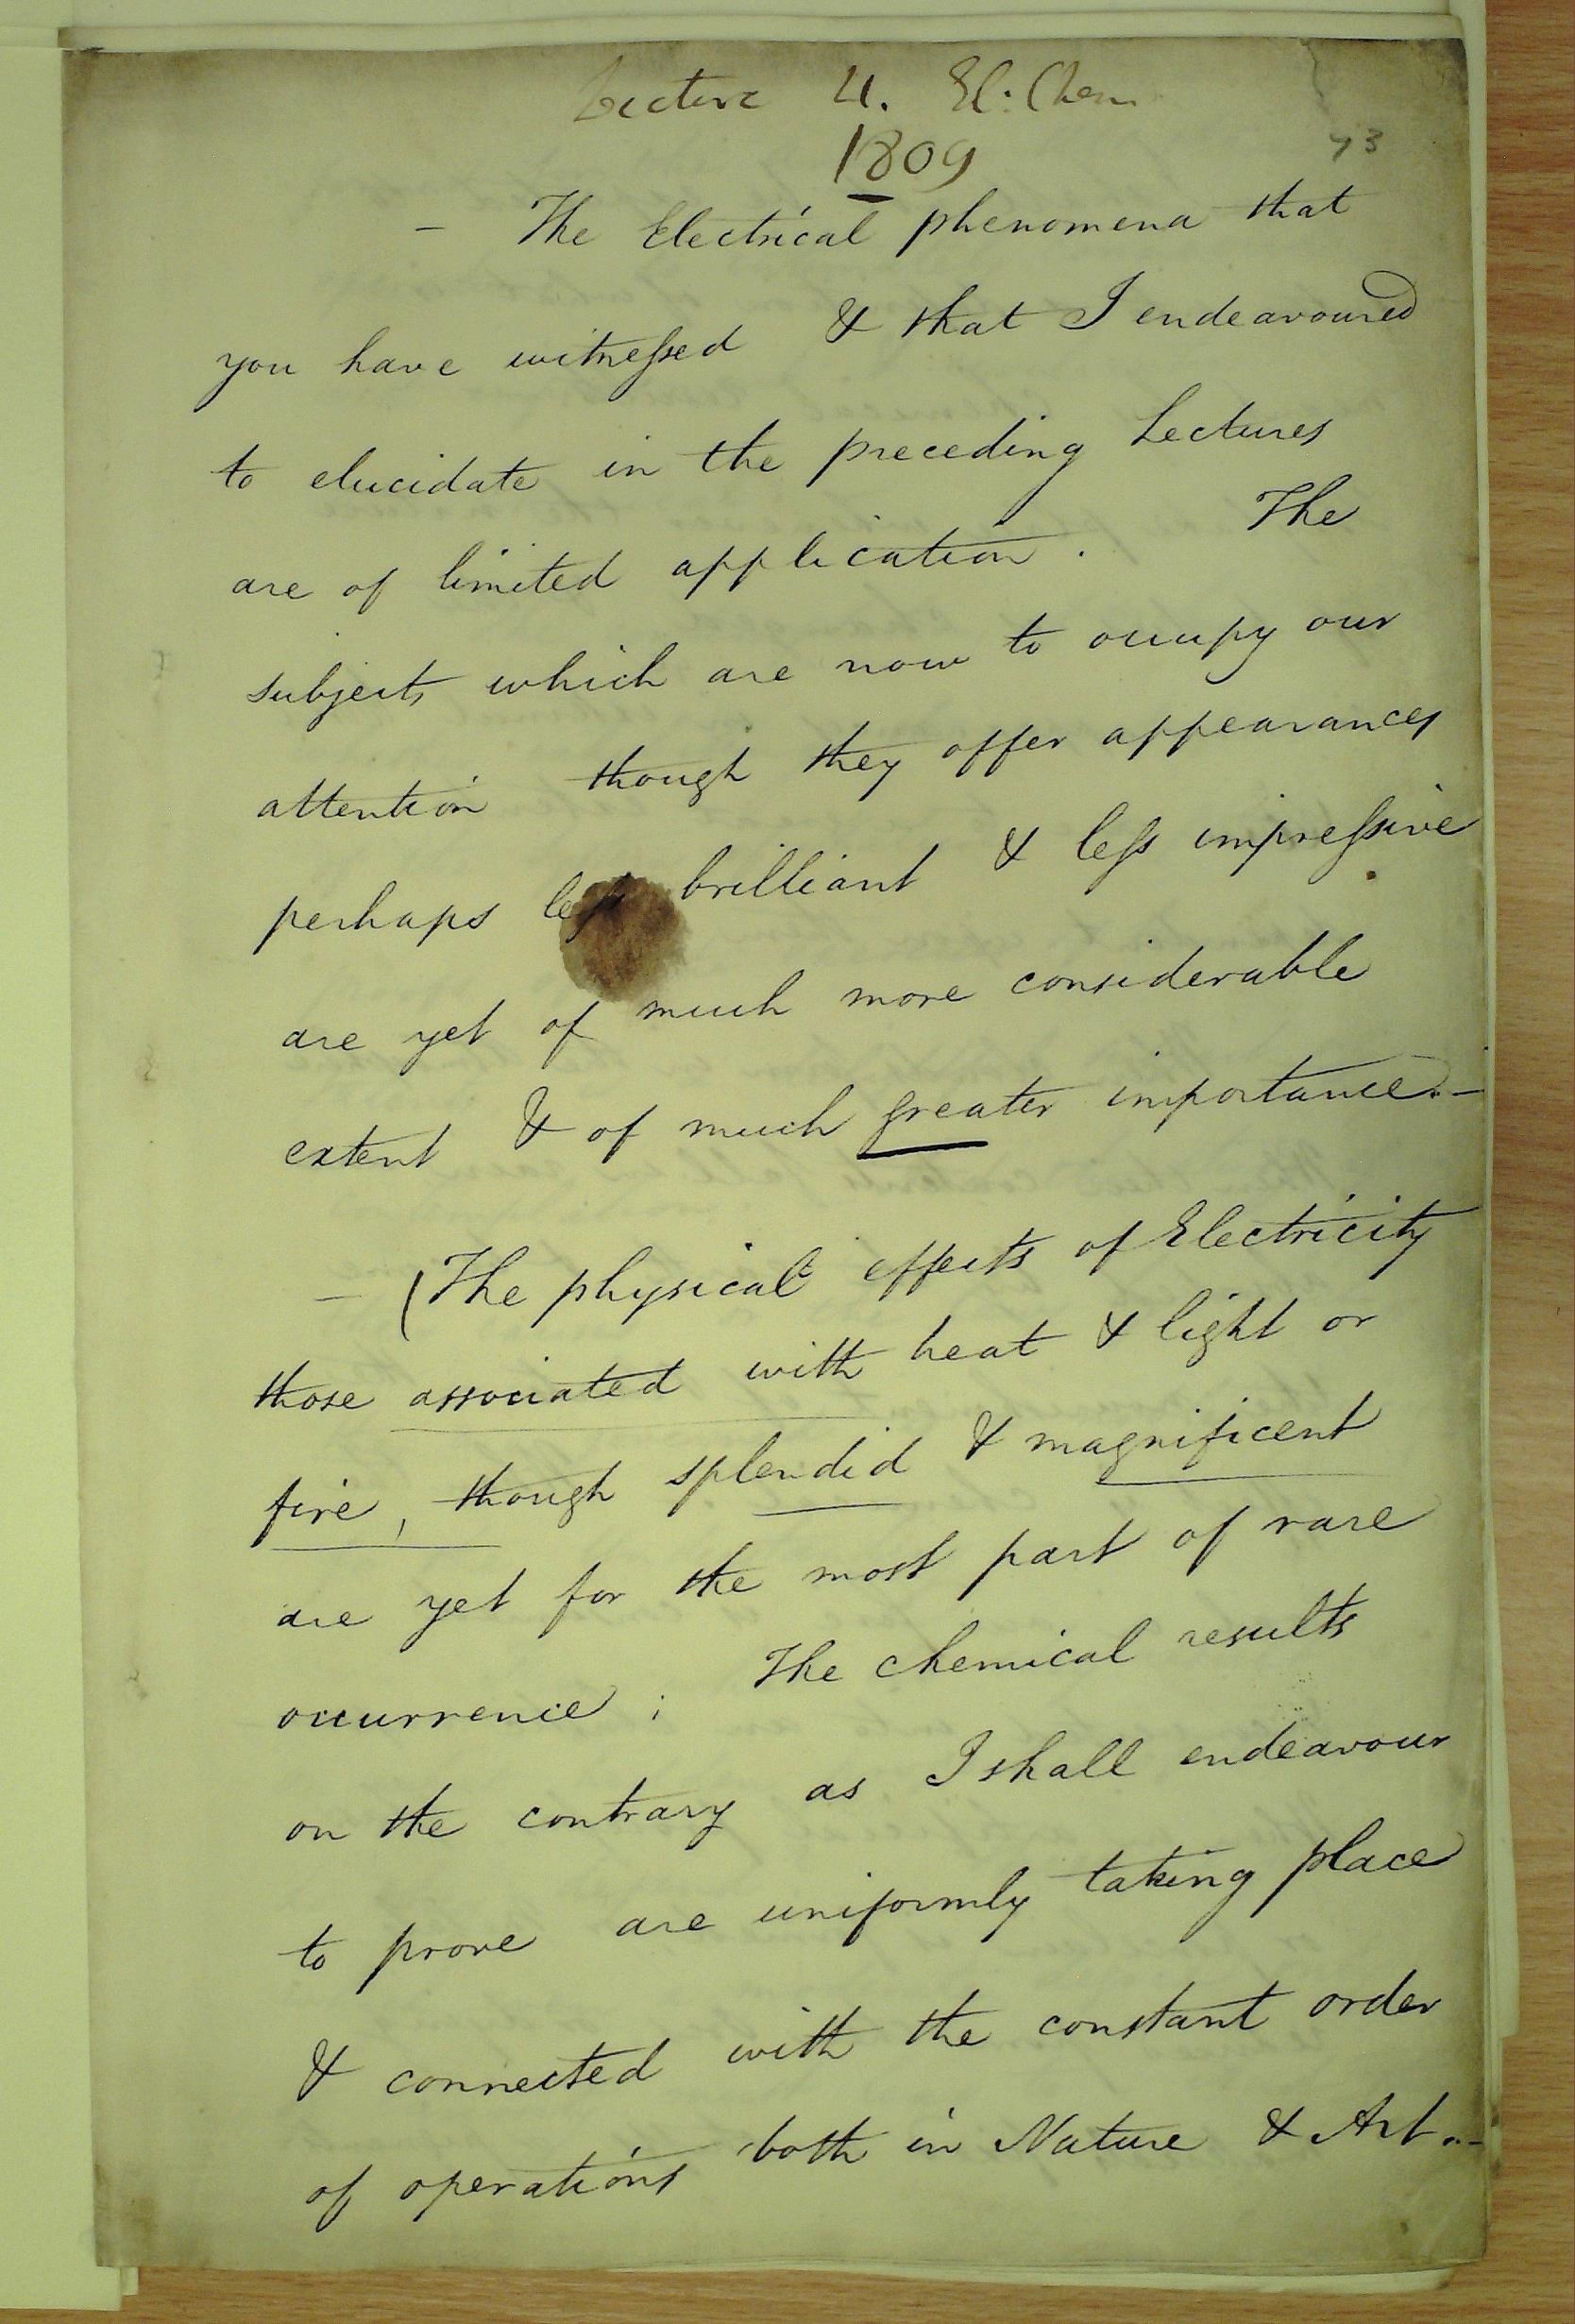 Lecture 4. El: Chem
1809
73
— The Electrical phenomena that
you have witnessed & that I endeavoured
to elucidate in the preceding Lectures
are of limited application. The
subjects which are now to occupy our
attention though they offer appearances
perhaps less brilliant & less impressive
are yet of much more considerable
extent & of much greater importance.—
— (The physical effects of Electricity
those associated with heat & light or
fire, though splendid & magnificent
are yet for the most part of rare
occurrence; The chemical results
on the contrary as I shall endeavour
to prove are uniformly taking place
& connected with the constant order
of operations both in Nature & Art.—